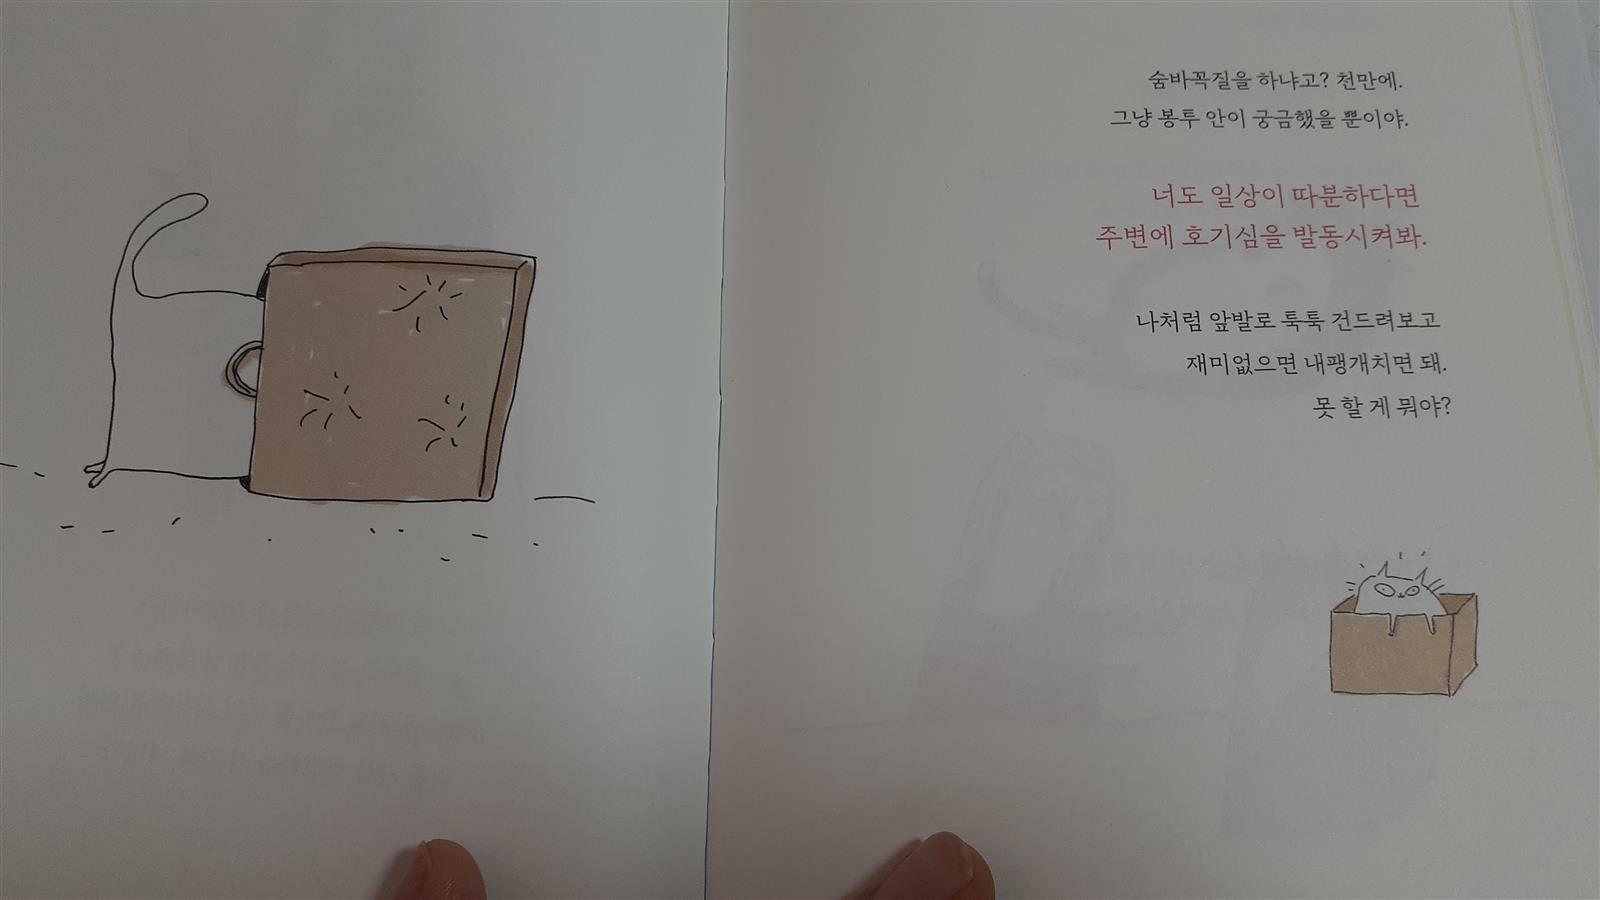 숨바꼭질을 하냐고? 천만에.
그냥 봉투 안이 궁금했을 뿐이야.
너도 일상이 따분하다면
주변에 호기심을 발동시켜봐.
나처럼 앞발로 툭툭 건드려보고
재미없으면 내팽개치면 돼.
못 할 게 뭐야?